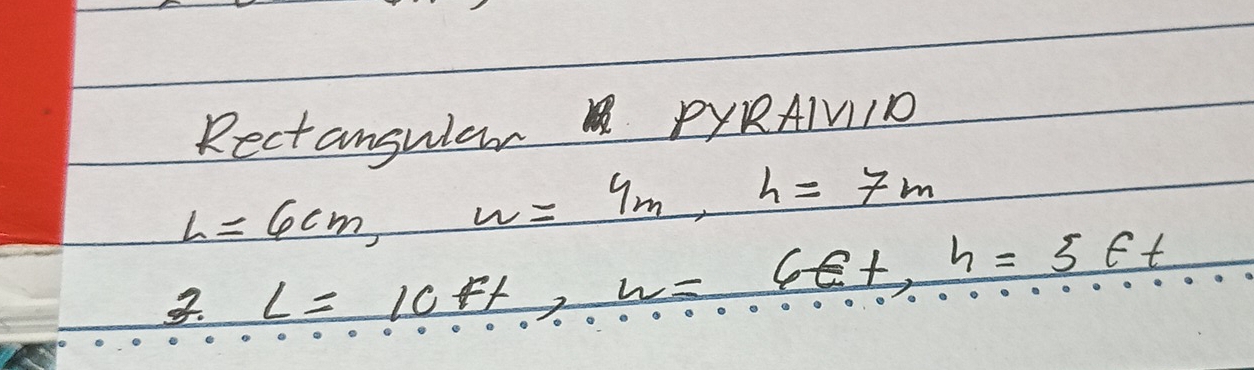 Rectangular PYRAMID
L = 6cm, w = 4m, h = 7m
2. L = 10 ft, w = 6ft, h = 5 ft